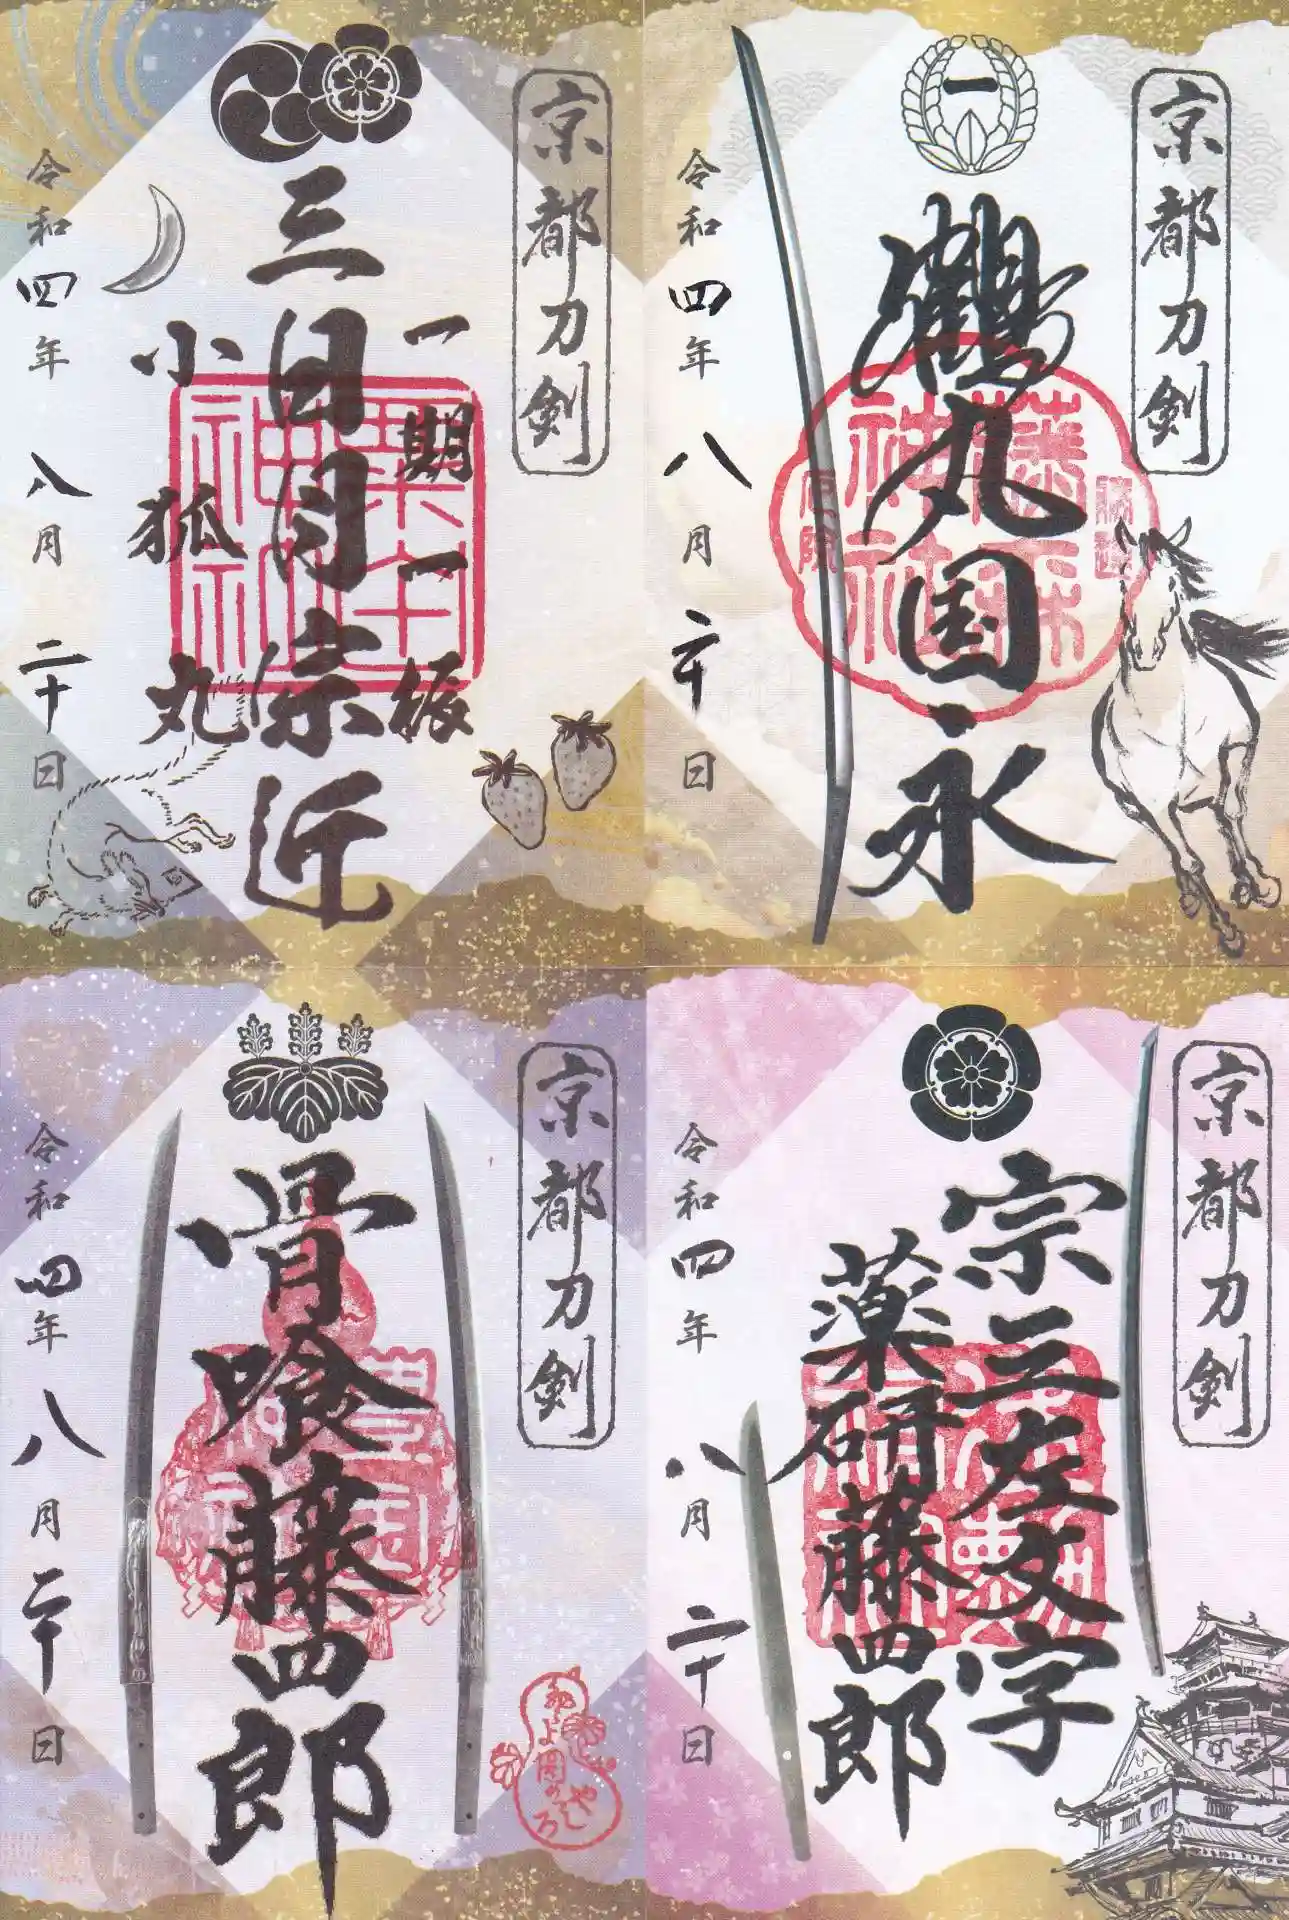 京都刀剣
一期一振
三日月宗近
小狐丸
粟田神社
令和四年八月二十日
京都刀剣
一
鶴丸国永
藤森神社
令和四年八月二十日
京都刀剣
骨喰藤四郎
豊国神社
令和四年八月二十日
京都刀剣
宗三左文字
薬研藤四郎
令和四年八月二十日